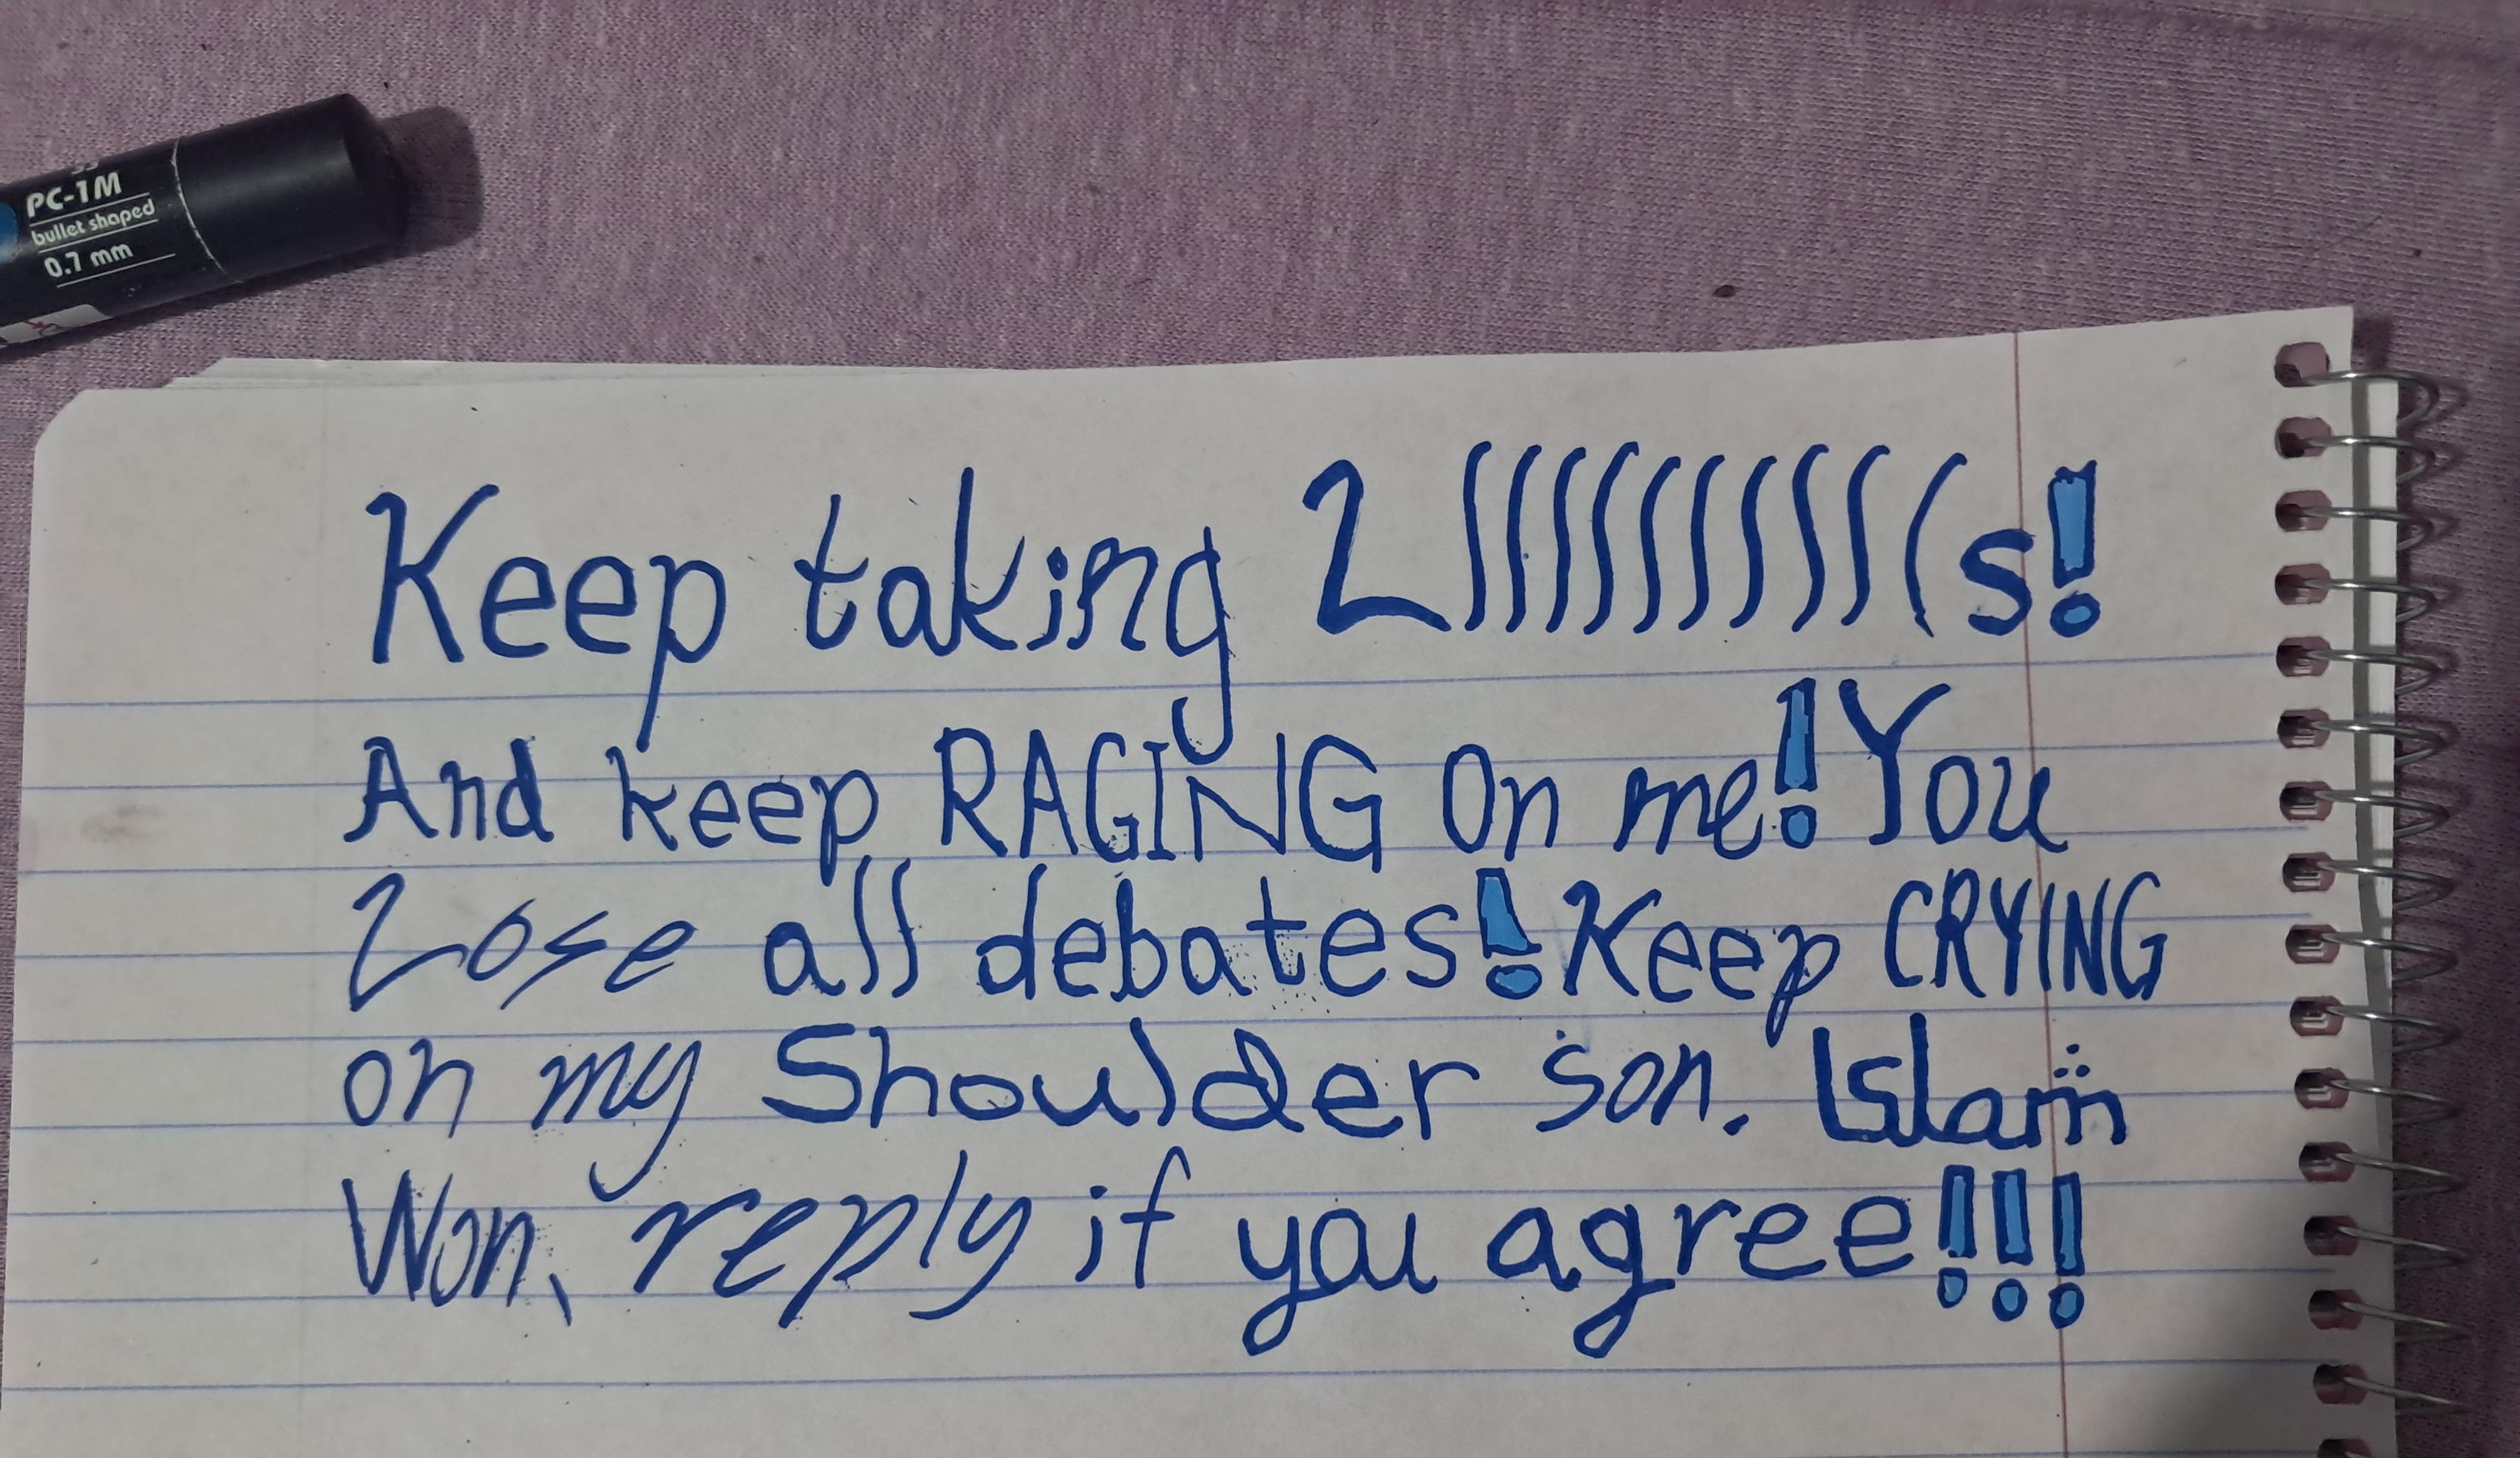 PC-1M
bullet shaped
0.7 mm
Keep taking Lllllllllls!
And keep RAGING on me! You
Lose all debates! Keep CRYING
on my Shoulder son. Islam
Won, reply if you agree!!!